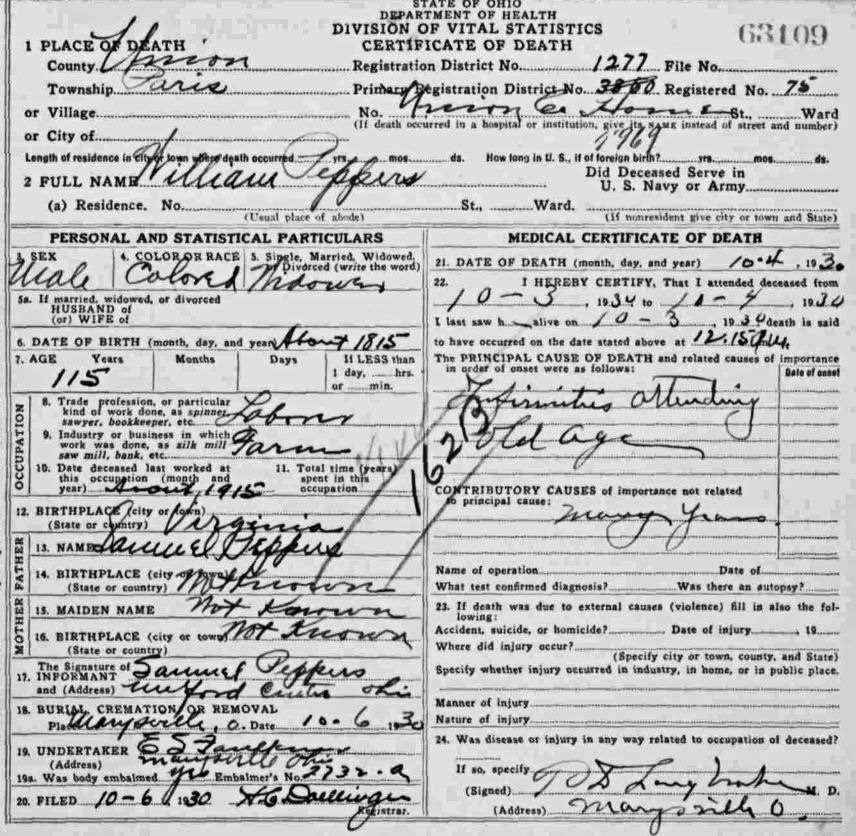 STATE OF OHIO
DEPARTMENT OF HEALTH
DIVISION OF VITAL STATISTICS
CERTIFICATE OF DEATH
63109
1 PLACE OF DEATH
County Union
Registration District No. 1277 File No.
Township Paris
Primary Registration District No. 3860 Registered No. 75
or Village
No. Union Co Home St., Ward
(If death occurred in a hospital or institution, give its NAME instead of street and number)
or City of
Length of residence in city or town where death occurred yrs. mos. ds. How long in U. S., if of foreign birth? yrs. mos. ds.
2 FULL NAME William Peppers
Did Deceased Serve in
U. S. Navy or Army
(a) Residence. No. St., Ward.
(Usual place of abode) (If nonresident give city or town and State)
PERSONAL AND STATISTICAL PARTICULARS
3. SEX 4. COLOR OR RACE 5. Single, Married, Widowed,
Divorced (write the word)
Male Colored Widower
5a. If married, widowed, or divorced
HUSBAND of
(or) WIFE of
6. DATE OF BIRTH (month, day, and year) About 1815
7. AGE Years Months Days If LESS than
1 day, hrs.
or min.
115
OCCUPATION
8. Trade profession, or particular
kind of work done, as spinner,
sawyer, bookkeeper, etc. Labor
9. Industry or business in which
work was done, as silk mill
saw mill, bank, etc. Farm
10. Date deceased last worked at
this occupation (month and
year) About 1915
11. Total time (years)
spent in this
occupation
12. BIRTHPLACE (city or town)
(State or country) Virginia
FATHER
13. NAME Samuel Peppers
14. BIRTHPLACE (city or town)
(State or country) Not Known
MOTHER
15. MAIDEN NAME Not Known
16. BIRTHPLACE (city or town) Not Known
(State or country)
17. The Signature of
INFORMANT Samuel Peppers
and (Address) Milford Center Ohio
18. BURIAL, CREMATION OR REMOVAL
Place Marysville, O. Date 10-6 1930
19. UNDERTAKER E S
(Address) Marysville Ohio
19a. Was body embalmed yes Embalmer's No. 2732-a
20. FILED 10-6 1930
Registrar.
MEDICAL CERTIFICATE OF DEATH
21. DATE OF DEATH (month, day, and year) 10-4, 1930
22. I HEREBY CERTIFY, That I attended deceased from
10-3, 1930 to 10-4, 1930
I last saw h alive on 10-3, 1930 death is said
to have occurred on the date stated above at 12.15
The PRINCIPAL CAUSE OF DEATH and related causes of importance
in order of onset were as follows:
Date of onset
Infirmities attending
old age
162B
CONTRIBUTORY CAUSES of importance not related
to principal cause:
Many years
Name of operation Date of
What test confirmed diagnosis? Was there an autopsy?
23. If death was due to external causes (violence) fill in also the fol-
lowing:
Accident, suicide, or homicide? Date of injury 19
Where did injury occur?
(Specify city or town, county, and State)
Specify whether injury occurred in industry, in home, or in public place.
Manner of injury
Nature of injury
24. Was disease or injury in any way related to occupation of deceased?
If so, specify
(Signed) M. D.
(Address) Marysville O.